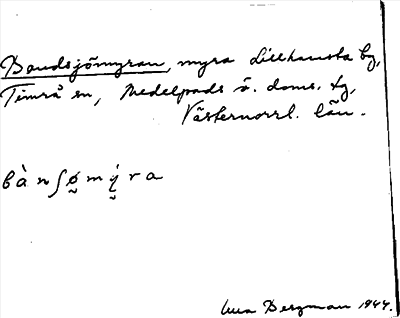 Bandsjömyran, myra Lillhavsta by,
Timrå sn, Medelpads ö. doms. tg,
Västernorrl. län.
bànʃø̰mý̰ra
Bergman 1944.